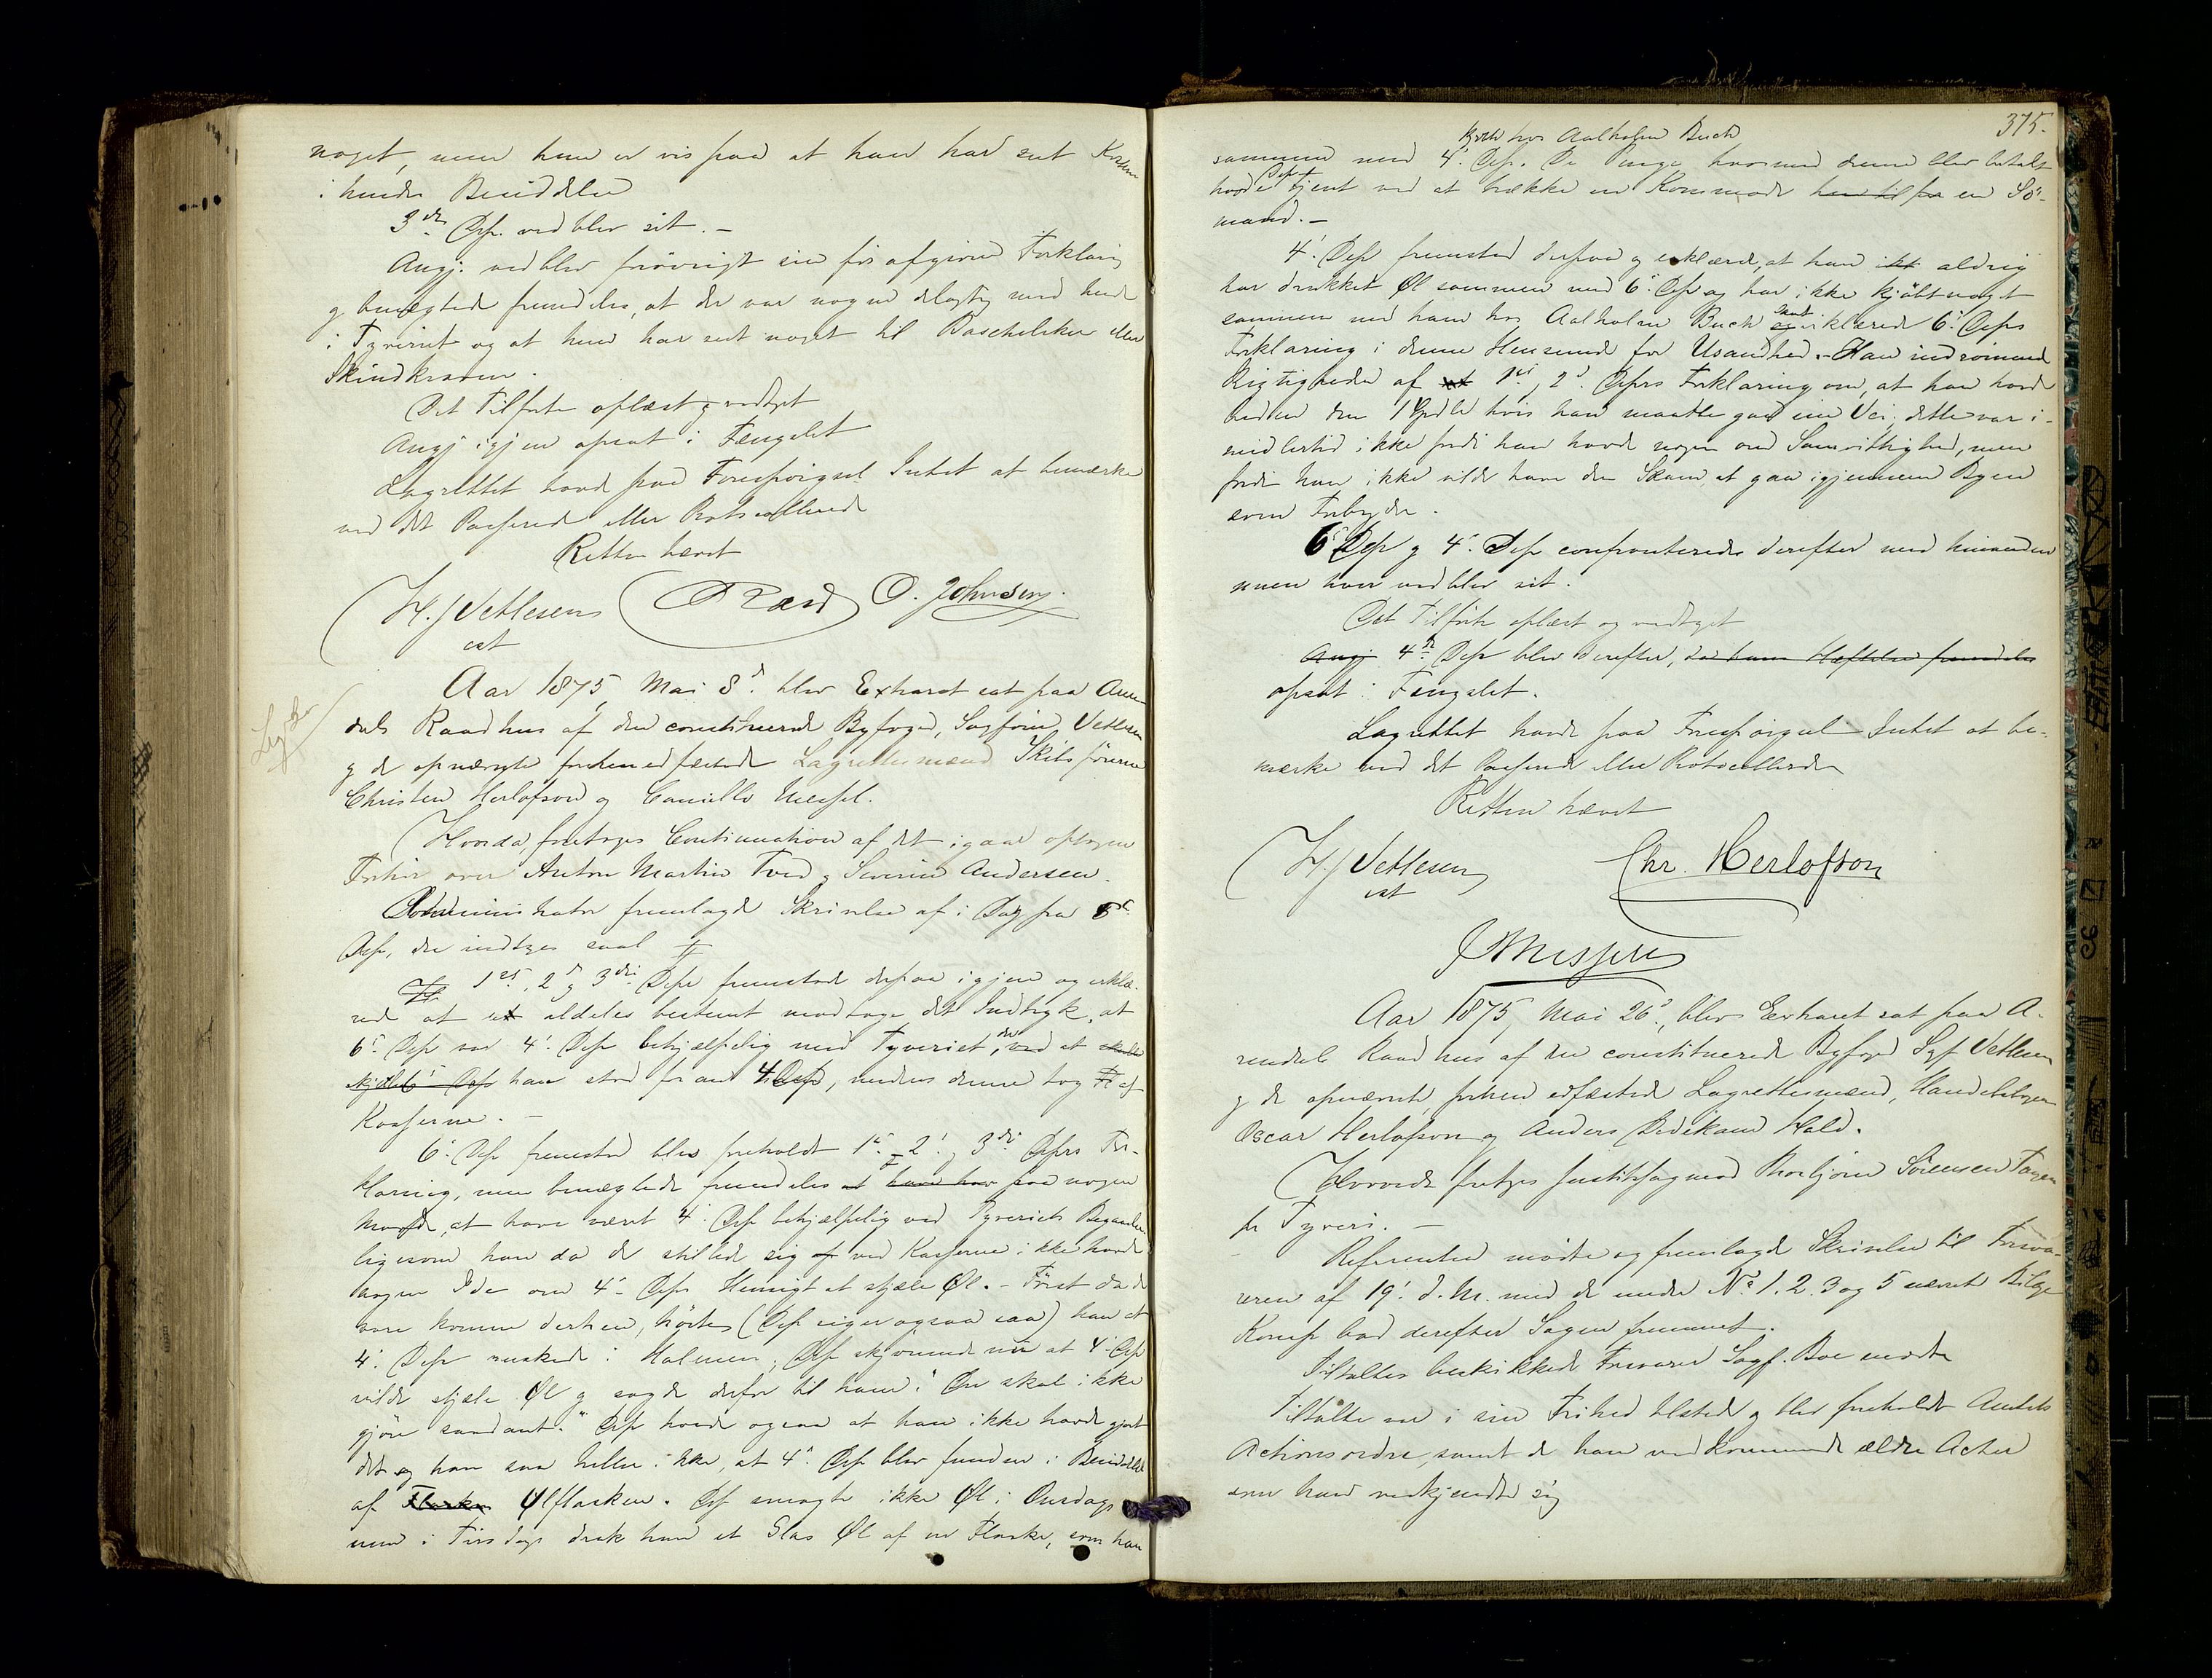 noget, men hun er vis paa at hun har set Kassen
i hendes Besiddelse
3die Dep. vedblev sit. —
Angj. vedblev forøvrigt sin før afgivne Forklaring
og benægtede fremdeles, at der var nogen delagtig med hende
i Tyveriet og at hun har
Skindkraven.
Det Tilførte oplæst og vedtaget
Angj igjen opsat i Fængslet
Lagrettet havde paa Forespørgsel Intet at bemærke
ved det Passerede eller Protocollerede
Retten hævet
H. J Vetlesen O. Johnsen
cst
Aar 1875, Mai 8de blev Extraret sat paa Aren-
dals Raadhus af den constituerede Byfoged, Sagfører Vetlesen
og de opnævnte forhen edfæstede Lagrettesmænd Skibsførerne
Christen Herlofson og Camillo
Hvorda, foretages Continuation af det igaar optagne
Forhør over Anton Martin Tved og Severin Andersen.
Administrator fremlagde Skrivelse af i Dag fra
Dep, der indtages saal
1ste, 2den og 3die Depe fremstod derpaa igjen og erklæ-
rede at aldeles bestemt modtoge det Indtryk, at
6te Dep var 4de Dep behjælpelig med Tyveriet, ved at
skjulte 6te Dep han stod foran 4 Dep, medens denne tog Øl af
Kasserne. —
6te Dep fremstod blev foreholdt 1ste 2den og 3die Deprs For-
klaring, men benægtede fremdeles at have har paa nogen
Maade, at have været 4de Dep behjælpelig ved Tyveriets Begaaelse
ligesom han da de stillede sig op ved Kasserne ikke havde
nogen Ide om 4de Deps Hensigt at stjæle Øl. — Først da de
vare komne derhen, hørte (Dep siger ogsaa saa) han at
4de Dep ruskede i Halmen, Dep skjønnede nu at 4de Dep
vilde stjæle Øl og sagde derfor til ham: "Du skal ikke
gjøre saadant." Dep ogsaa at han ikke havde gjort
det og han saa heller ikke, at 4de Dep blev funden i Besiddelse
af Flasker Ølflasken. Dep smagte ikke Øl i Onsdags
men i Tirsdags drak han et Glas Øl af en Flaske, som han
375.
kjøbte hos Aalholm Buch
sammen med 4de Dep. De Penge hvormed denne blev betalt
havde Dep tjent ved at trække en Kommode hen til fra en Sø-
mand. —
4de Dep fremstod derpaa og erklærede, at han ikke aldrig
har drukket Øl sammen med 6te Dep og har ikke kjøbt noget
sammen med ham hos Aalholm Buch samt og erklærede 6te Deps
Forklaring i denne Henseende for Usandhed. — Han indrømmede
Rigtigheden af at 1ste, 2den Deprs Forklaring om, at han havde
budet dem 1 Spdlr hvis han maatte gaa sin Vei, dette var i-
midlertid ikke fordi han havde nogen ond Samvittighed, men
fordi han ikke vilde have den Skam at gaa igjennem Byen
som Forbryder.
6te Dep og 4de Dep confronteredes derefter med hinanden
men hver vedblev sit.
Det Tilførte oplæst og vedtaget
Angj 4de Dep blev derefter, da hans Hæftelse fremdeles
opsat i Fængslet.
Lagrettet havde paa Forespørgsel Intet at be-
mærke ved det Passerede eller Protocollerede
Retten hævet
H J Vetlesen Chr. Herlofson
cst
Aar 1875, Mai 26de, blev Extraret sat paa A-
rendals Raadhus af den constituerede Byfoged Sgf Vetlesen
og de opnævnte, forhen edfæstede Lagrettesmænd, Handelsborger
Oscar Herlofson og Anders Didikand Hald.
Hvorda foretages Justitssag mod Thorbjørn Sørensen
for Tyveri. —
Referenten mødte og fremlagde Skrivelse til Forsva-
reren af 19de d. M. med de under No 1. 2. 3 og 5 nævnte Bilage
Komp bad derefter Sagen fremmet.
Tiltaltes beskikkede Forsvarer Sagf. Boe mødte
Tiltalte var i sin Frihed tilstede og blev foreholdt Amtets
Actionsordre, samt de ham vedkommende ældre Acter
som han vedkjendte sig